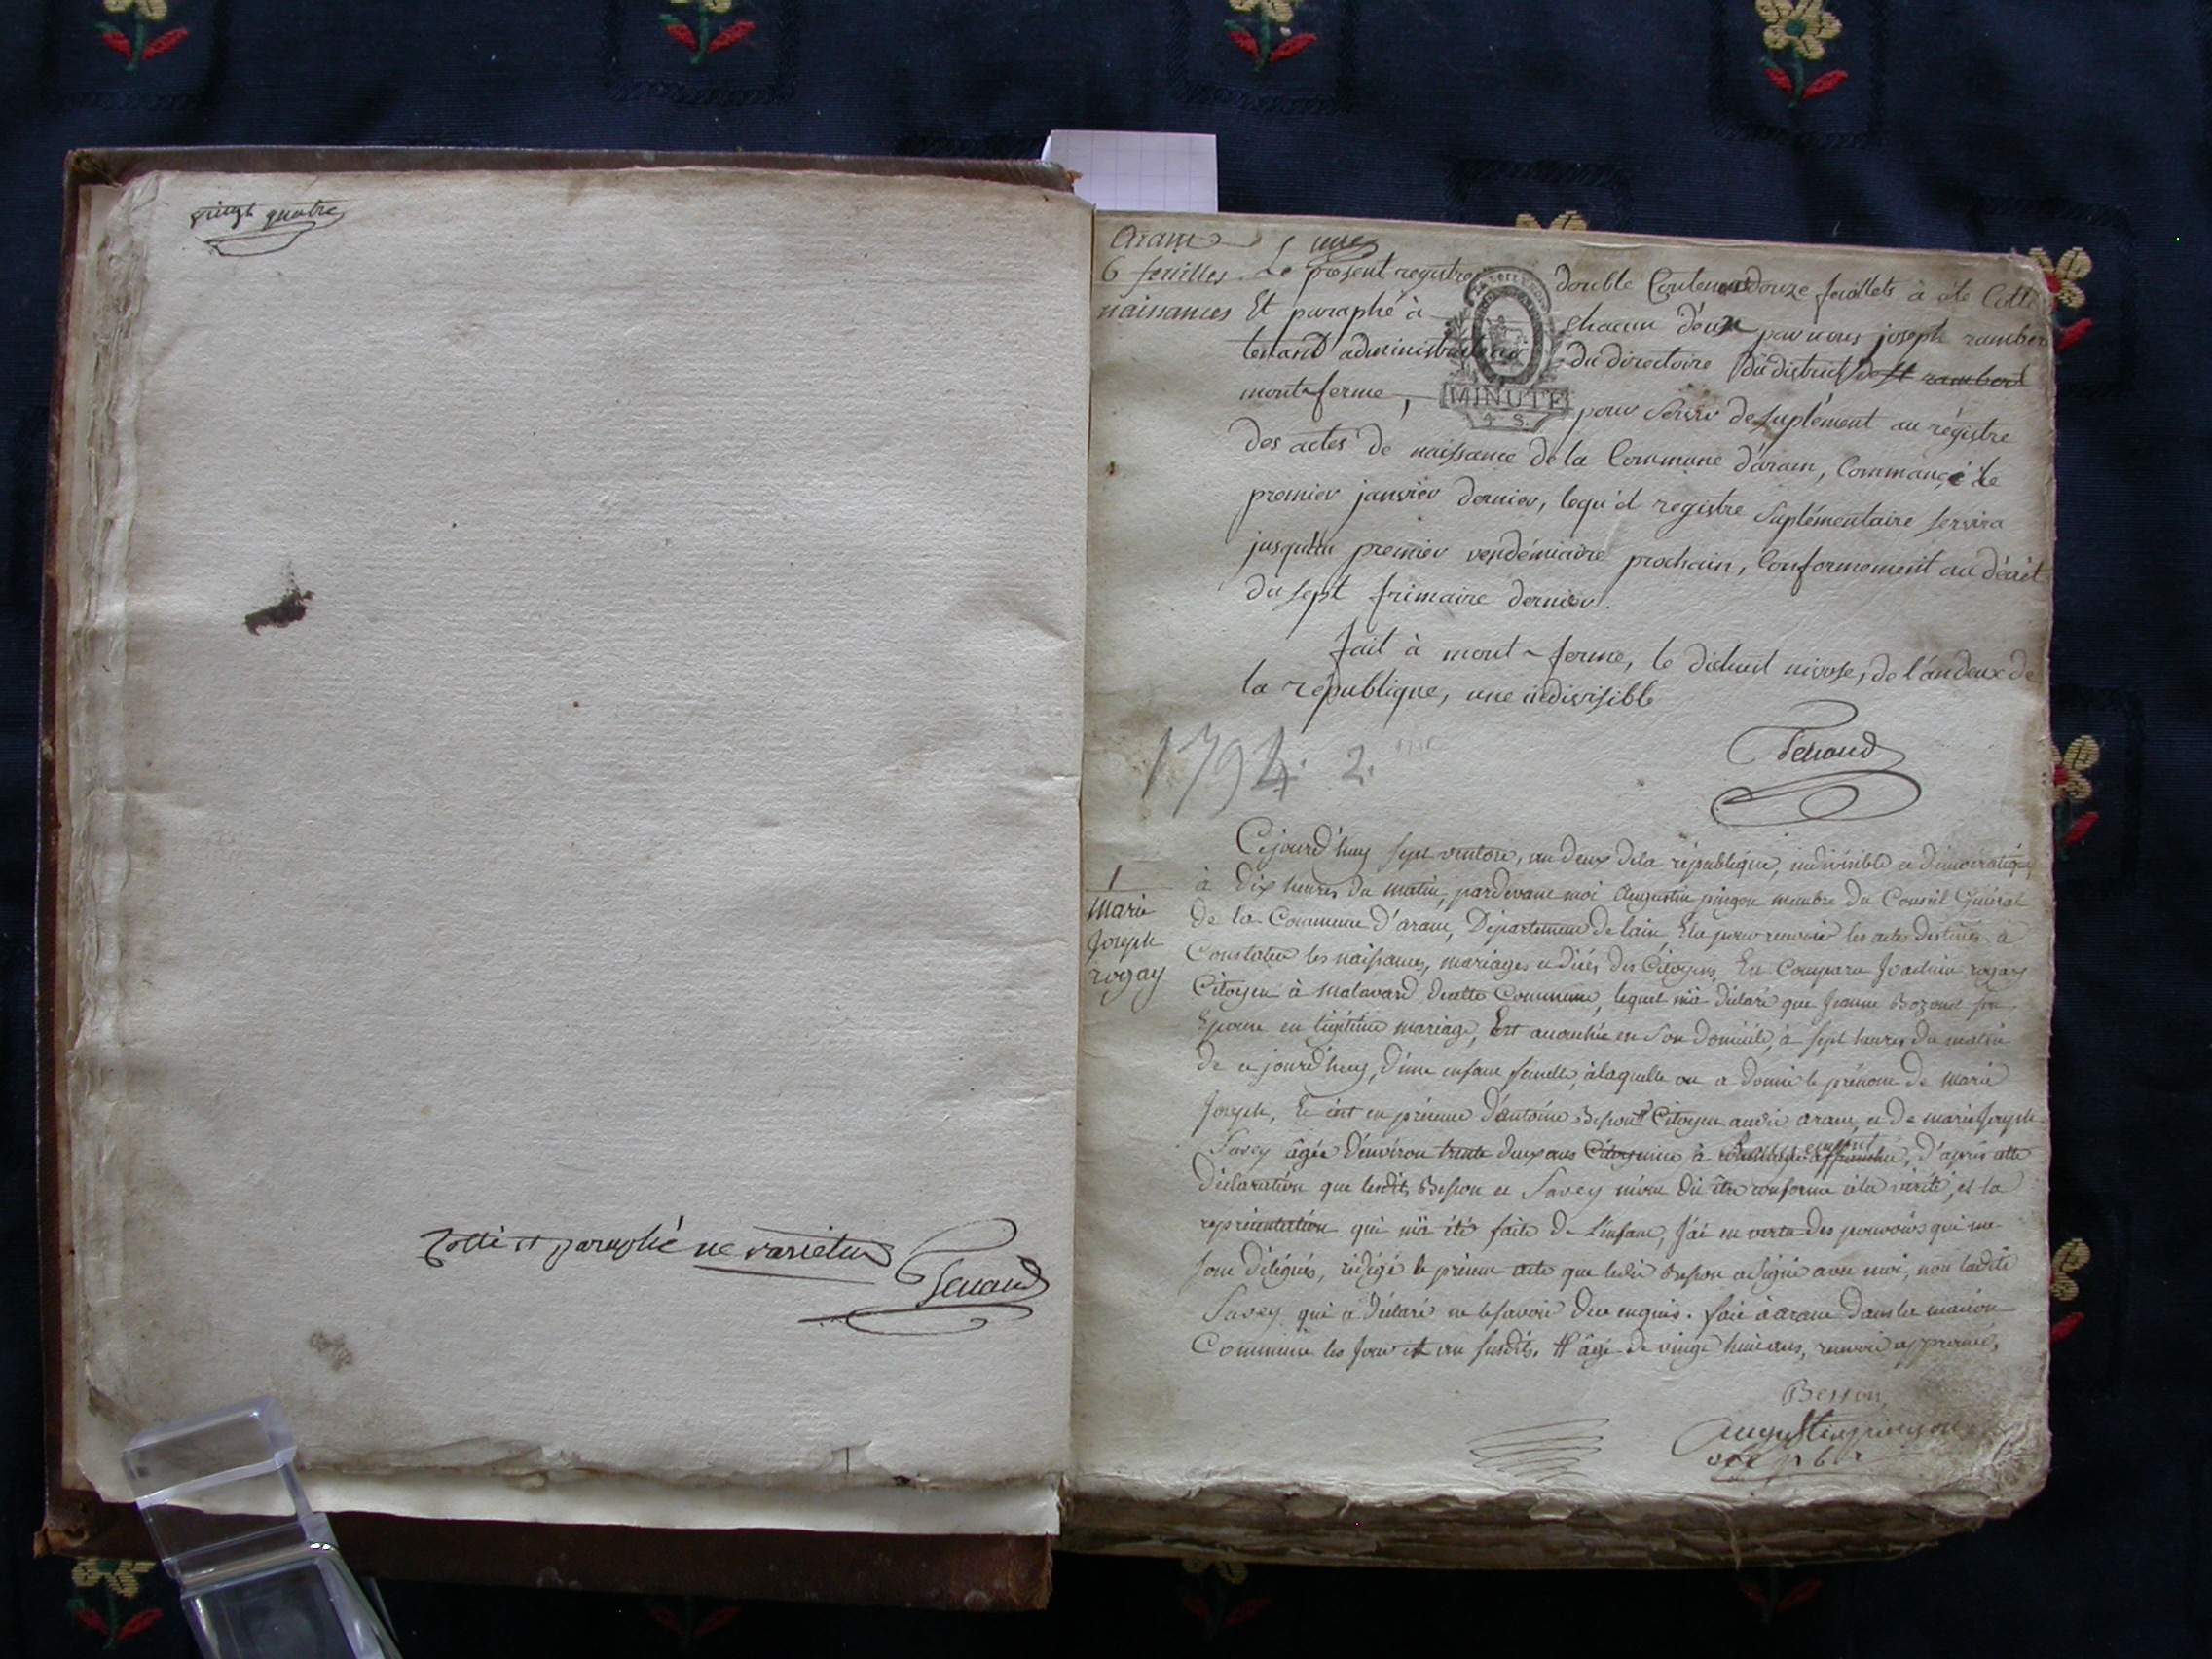 vingt quatre
Cotté et paraphé ne varietur
Tenand
Aram
6 feuilles
naissances
une
Le présent registre double Contenant douze feuillets à été Cotté
Et paraphé à chacun d'eux par nous joseph rambert
tenand administrateur du directoire du district de st rambert
mont-ferme, pour servir de suplément au régistre
MINUTE
4 S.
des actes de naissance de la Commune d'aram, Commancé le
premier janvier dernier, lequ'el registre suplémentaire servira
jusqu'au premier vendémiaire prochain, Conformement au décret
du sept frimaire dernier.
fait à mont-ferme, le dixhuit nivose, de l'an deux de
la republique, une indivisible
Tenand
1794. 2.
1
Marie
Joseph
rogay
Cejourd'huy sept ventose, an deux dela république, indivisible et démocratique,
à dix heures du matin, pardevant moi Augustin pingon membre du Conseil Général
de la Commune d'aram, Département de lain Elu pour recevoir les actes destinés à
Constater les naissances, mariages et décés des Citoyens, Est Comparu Joachim rogay
Citoyen à Malavard ditte Commune, lequel m'a déclaré que Jeanne Bozonet son
Epouse en légitime mariage, Est accouchée en son domicile, à sept heures du matin
de ce jourd'huy, d'une enfant femelle, àlaquelle on a donné le prénom de Marie
Joseph, Et c'est en présence d'antoine Besson # Citoyen audit aram, et de marie Joseph
Savey âgée d'environ trente deux ans Citoyenne à d'après cette
Déclaration que lesdits Besson et Savey m'ont dit être conforme à la vérité, et la
représentation qui m'a été faite de L'enfant, J'ai en vertu des pouvoirs qui me
sont délégués, rédigé le présent acte que ledit Besson a signé avec moi, non ladite
Savey qui a déclaré ne le savoir Due enquis. fait à aram Dans la maison
Commune les Jour et an susdits. # âgé de vingt huit ans, renvoi approuvé,
Besson
Augustin pingon
off p b r